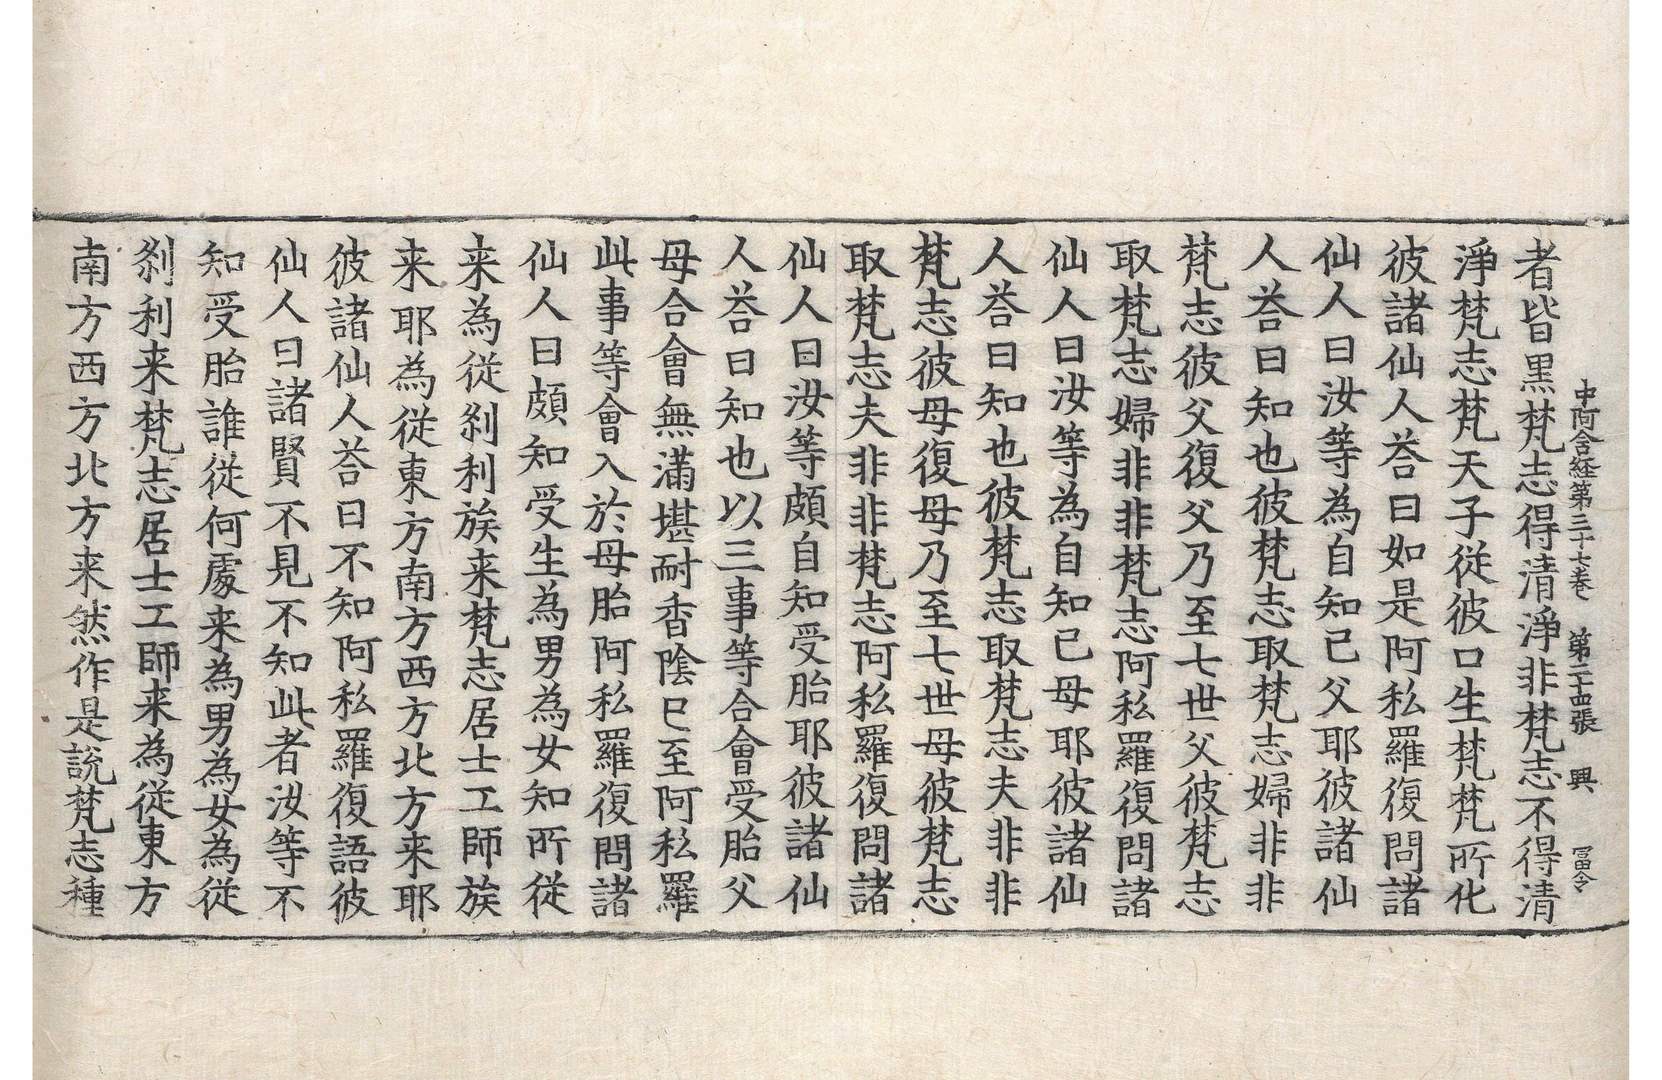 中阿含経第三十七巻 第二十四張 興 冨令
者皆黒梵志得清淨非梵志不得清
淨梵志梵天子從彼口生梵梵所化
彼諸仙人荅曰如是阿私羅復問諸
仙人曰汝等為自知已父耶彼諸仙
人荅曰知也彼梵志取梵志婦非非
梵志彼父復父乃至七世父彼梵志
取梵志婦非非梵志阿私羅復問諸
仙人曰汝等為自知已母耶彼諸仙
人荅曰知也彼梵志取梵志夫非非
梵志彼母復母乃至七世母彼梵志
取梵志夫非非梵志阿私羅復問諸
仙人曰汝等頗自知受胎耶彼諸仙
人荅曰知也以三事等合會受胎父
母合會無滿堪耐香陰已至阿私羅
此事等會入於母胎阿私羅復問諸
仙人曰頗知受生為男為女知所從
来為從刹利族来梵志居士工師族
来耶為從東方南方西方北方来耶
彼諸仙人荅曰不知阿私羅復語彼
仙人曰諸賢不見不知此者汝等不
知受胎誰從何處来為男為女為從
刹利来梵志居士工師来為從東方
南方西方北方来然作是說梵志種